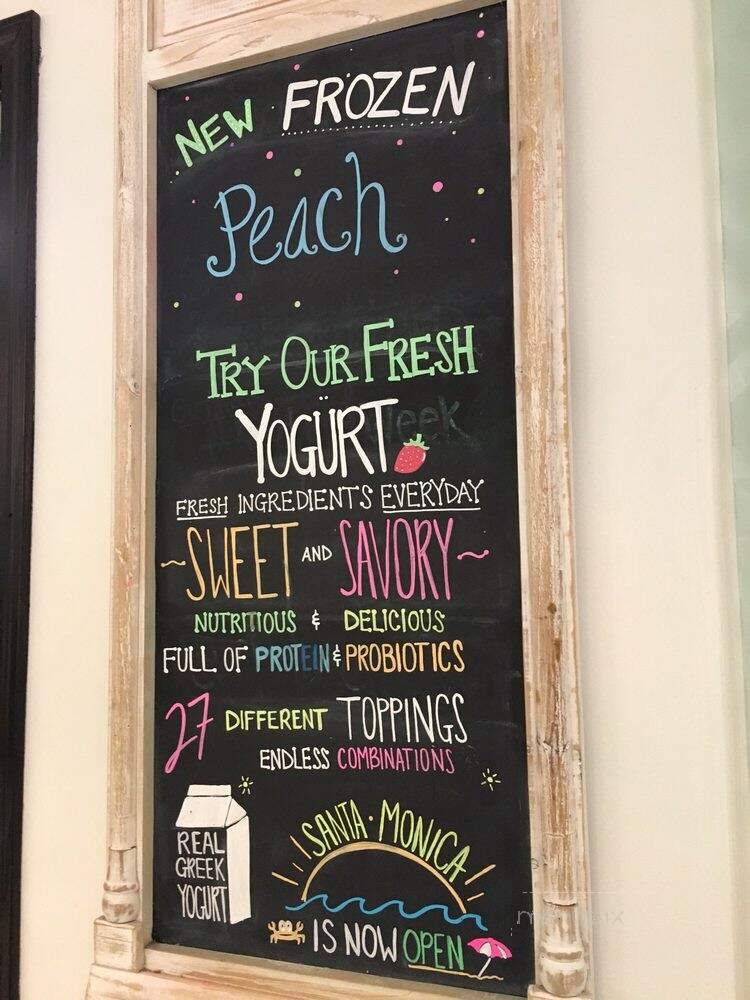 NEW FROZEN
Peach
TRY OUR FRESH
YOGÜRT
FRESH INGREDIENTS EVERYDAY
~SWEET AND SAVORY~
NUTRITIOUS & DELICIOUS
FULL OF PROTEIN & PROBIOTICS
27 DIFFERENT TOPPINGS
ENDLESS COMBINATIONS
REAL
GREEK
YOGURT
SANTA · MONICA
IS NOW OPEN